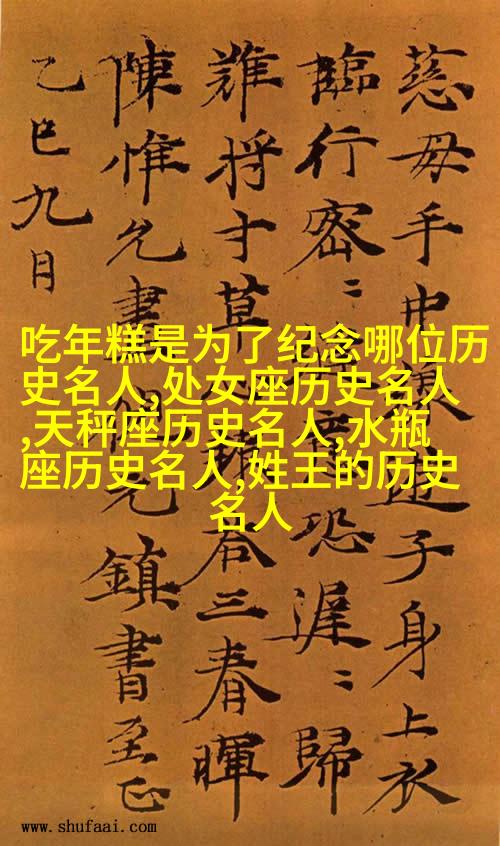 慈母手中線遊子身上衣
臨行密〻縫意恐遲〻歸
難将寸草心報答三春暉
陳惟允書 允鎮書至正
乙巳九月
吃年糕是为了纪念哪位历
史名人,处女座历史名人
,天秤座历史名人,水瓶
座历史名人,姓王的历史
名人
www.shufaai.com